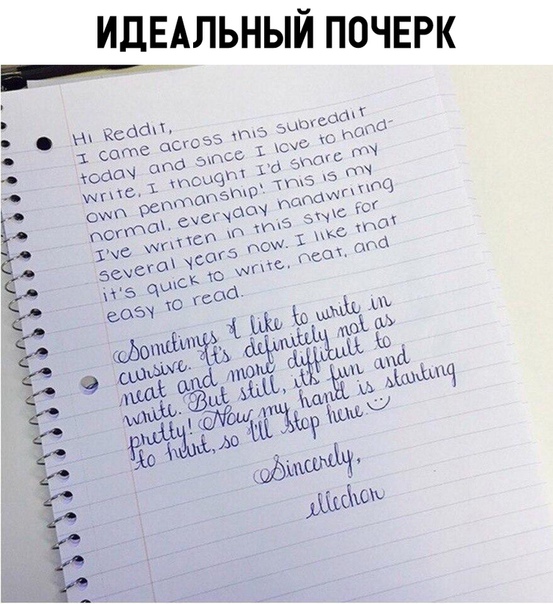 ИДЕАЛЬНЫЙ ПОЧЕРК
Hi Reddit,
I came across this subreddit
today and since I love to hand-
write, I thought I'd share my
own penmanship! This is my
normal, everyday handwriting
I've written in this style for
several years now. I like that
it's quick to write, neat, and
easy to read.
Sometimes I like to write in
cursive. It's definitely not as
neat and more difficult to
write. But still, it's fun and
pretty! Now my hand is starting
to hurt, so I'll stop here
Sincerely,
ellechon